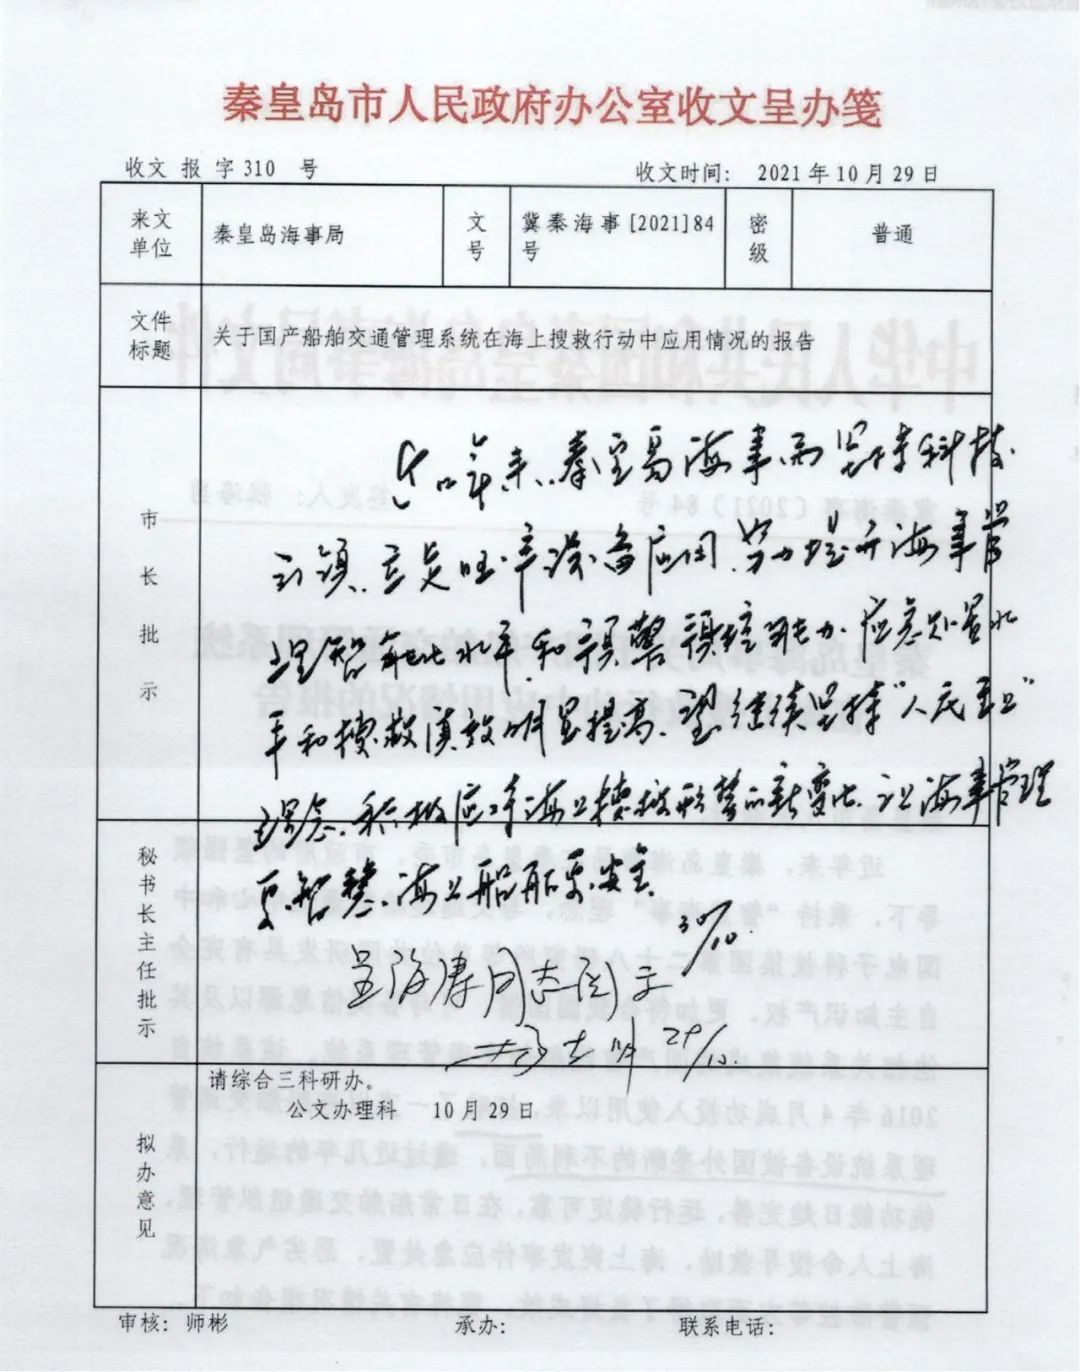 秦皇岛市人民政府办公室收文呈办笺
收文 报 字 310 号 收文时间： 2021 年 10 月 29 日
来文单位 秦皇岛海事局 文号 冀秦海事[2021]84号 密级 普通
文件标题 关于国产船舶交通管理系统在海上搜救行动中应用情况的报告
市长批示
年来，秦皇岛海事局坚持科技
引领、设备应用，努力提升海事管
理智能化水平和预警预控能力，应急处置水
平和搜救成效明显提高，望继续坚持“人民至上”
理念，积极应对海上搜救形势的新变化，让海事管理
更智慧、海上船舶更安全。
30/10.
秘书长主任批示
呈海涛同志阅示
29/10.
拟办意见
请综合三科研办。
公文办理科 10 月 29 日
审核： 师彬 承办： 联系电话：